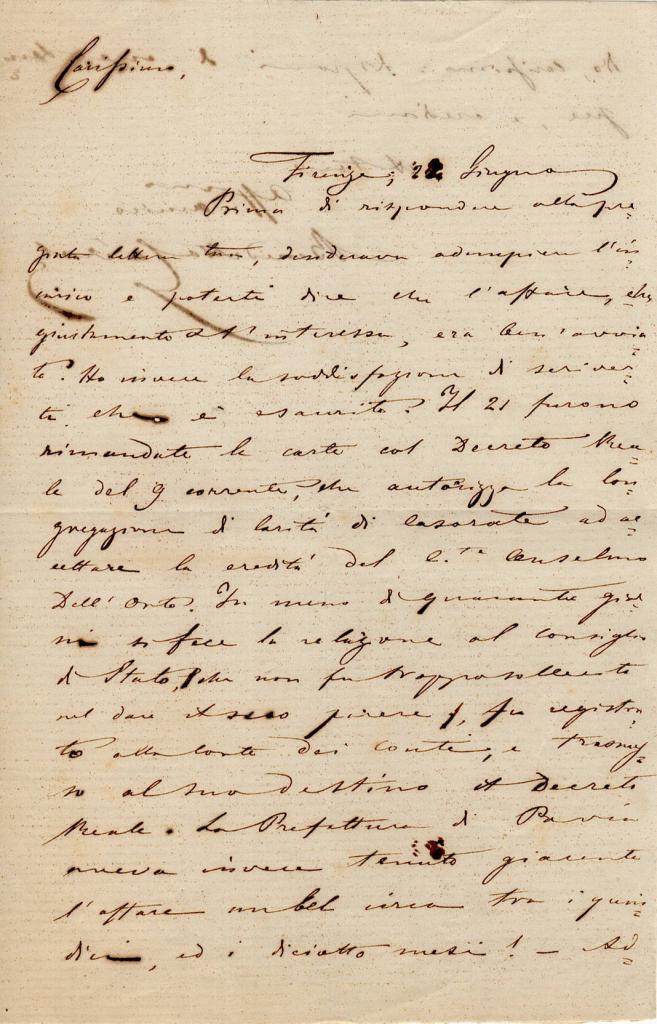 Carissimo,
Firenze, 28 Giugno
Prima di rispondere alla pre-
giata lettera tua, desiderava adempiere l'in-
carico e poterti dire che l'affare, che
giustamente t'interessa, era ben'avvia-
to. Ho invece la soddisfazione di scriver-
ti che è esaurito. Il 21 furono
rimandate le carte col Decreto Rea-
le del 9 corrente, che autorizza la Con-
gregazione di Carità di Casorate ad ac-
cettare la eredità del C.te Anselmo
Dell'Orto. In meno di quaranta gior-
ni si fece la relazione al Consiglio
di Stato, che non fu troppo sollecito
nel dare il suo parere, fu registra-
to alla Corte dei Conti, e trasmes-
so al suo destino il Decreto
Reale. La Prefettura di Pavia
aveva invece tenuto giacente
l'affare un bel circa tra i quin-
dici, ed i diciotto mesi! - Ad-